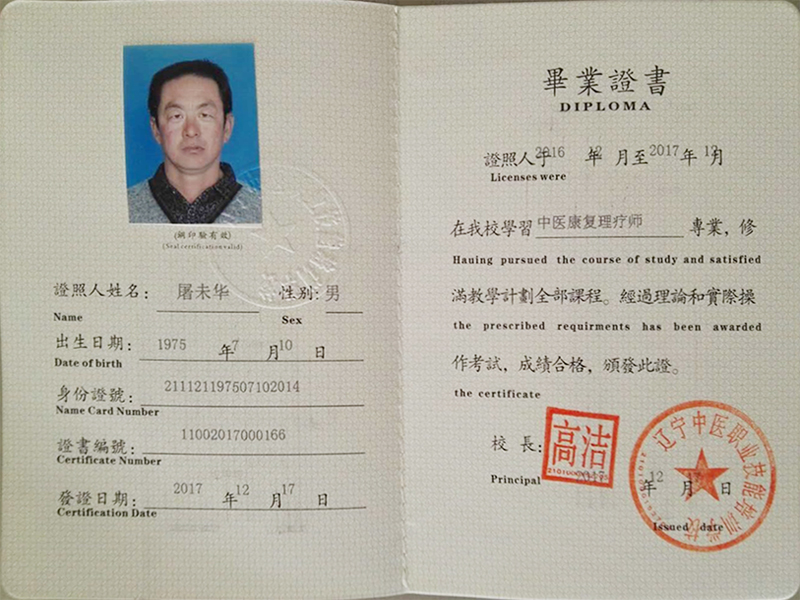 (鋼印驗有效)
(Seal certification valid)
證照人姓名: 屠未华 性别: 男
Name Sex
出生日期: 1975 年 7 月 10 日
Date of birth
身份證號: 211121197507102014
Name Card Number
證書編號: 11002017000166
Certificate Number
發證日期: 2017 年 12 月 17 日
Certification Date
畢業證書
DIPLOMA
證照人于 2016 年 2 月至 2017 年 12 月
Licenses were
在我校學習 中医康复理疗师 專業，修
Hauing pursued the course of study and satisfied
滿教學計劃全部課程。經過理論和實際操
the prescribed requirments has been awarded
作考試，成績合格，頒發此證。
the certificate
校長: 高洁
Principal 2017 年 12 月 17 日
Issued date
辽宁中医职业技能培训学校